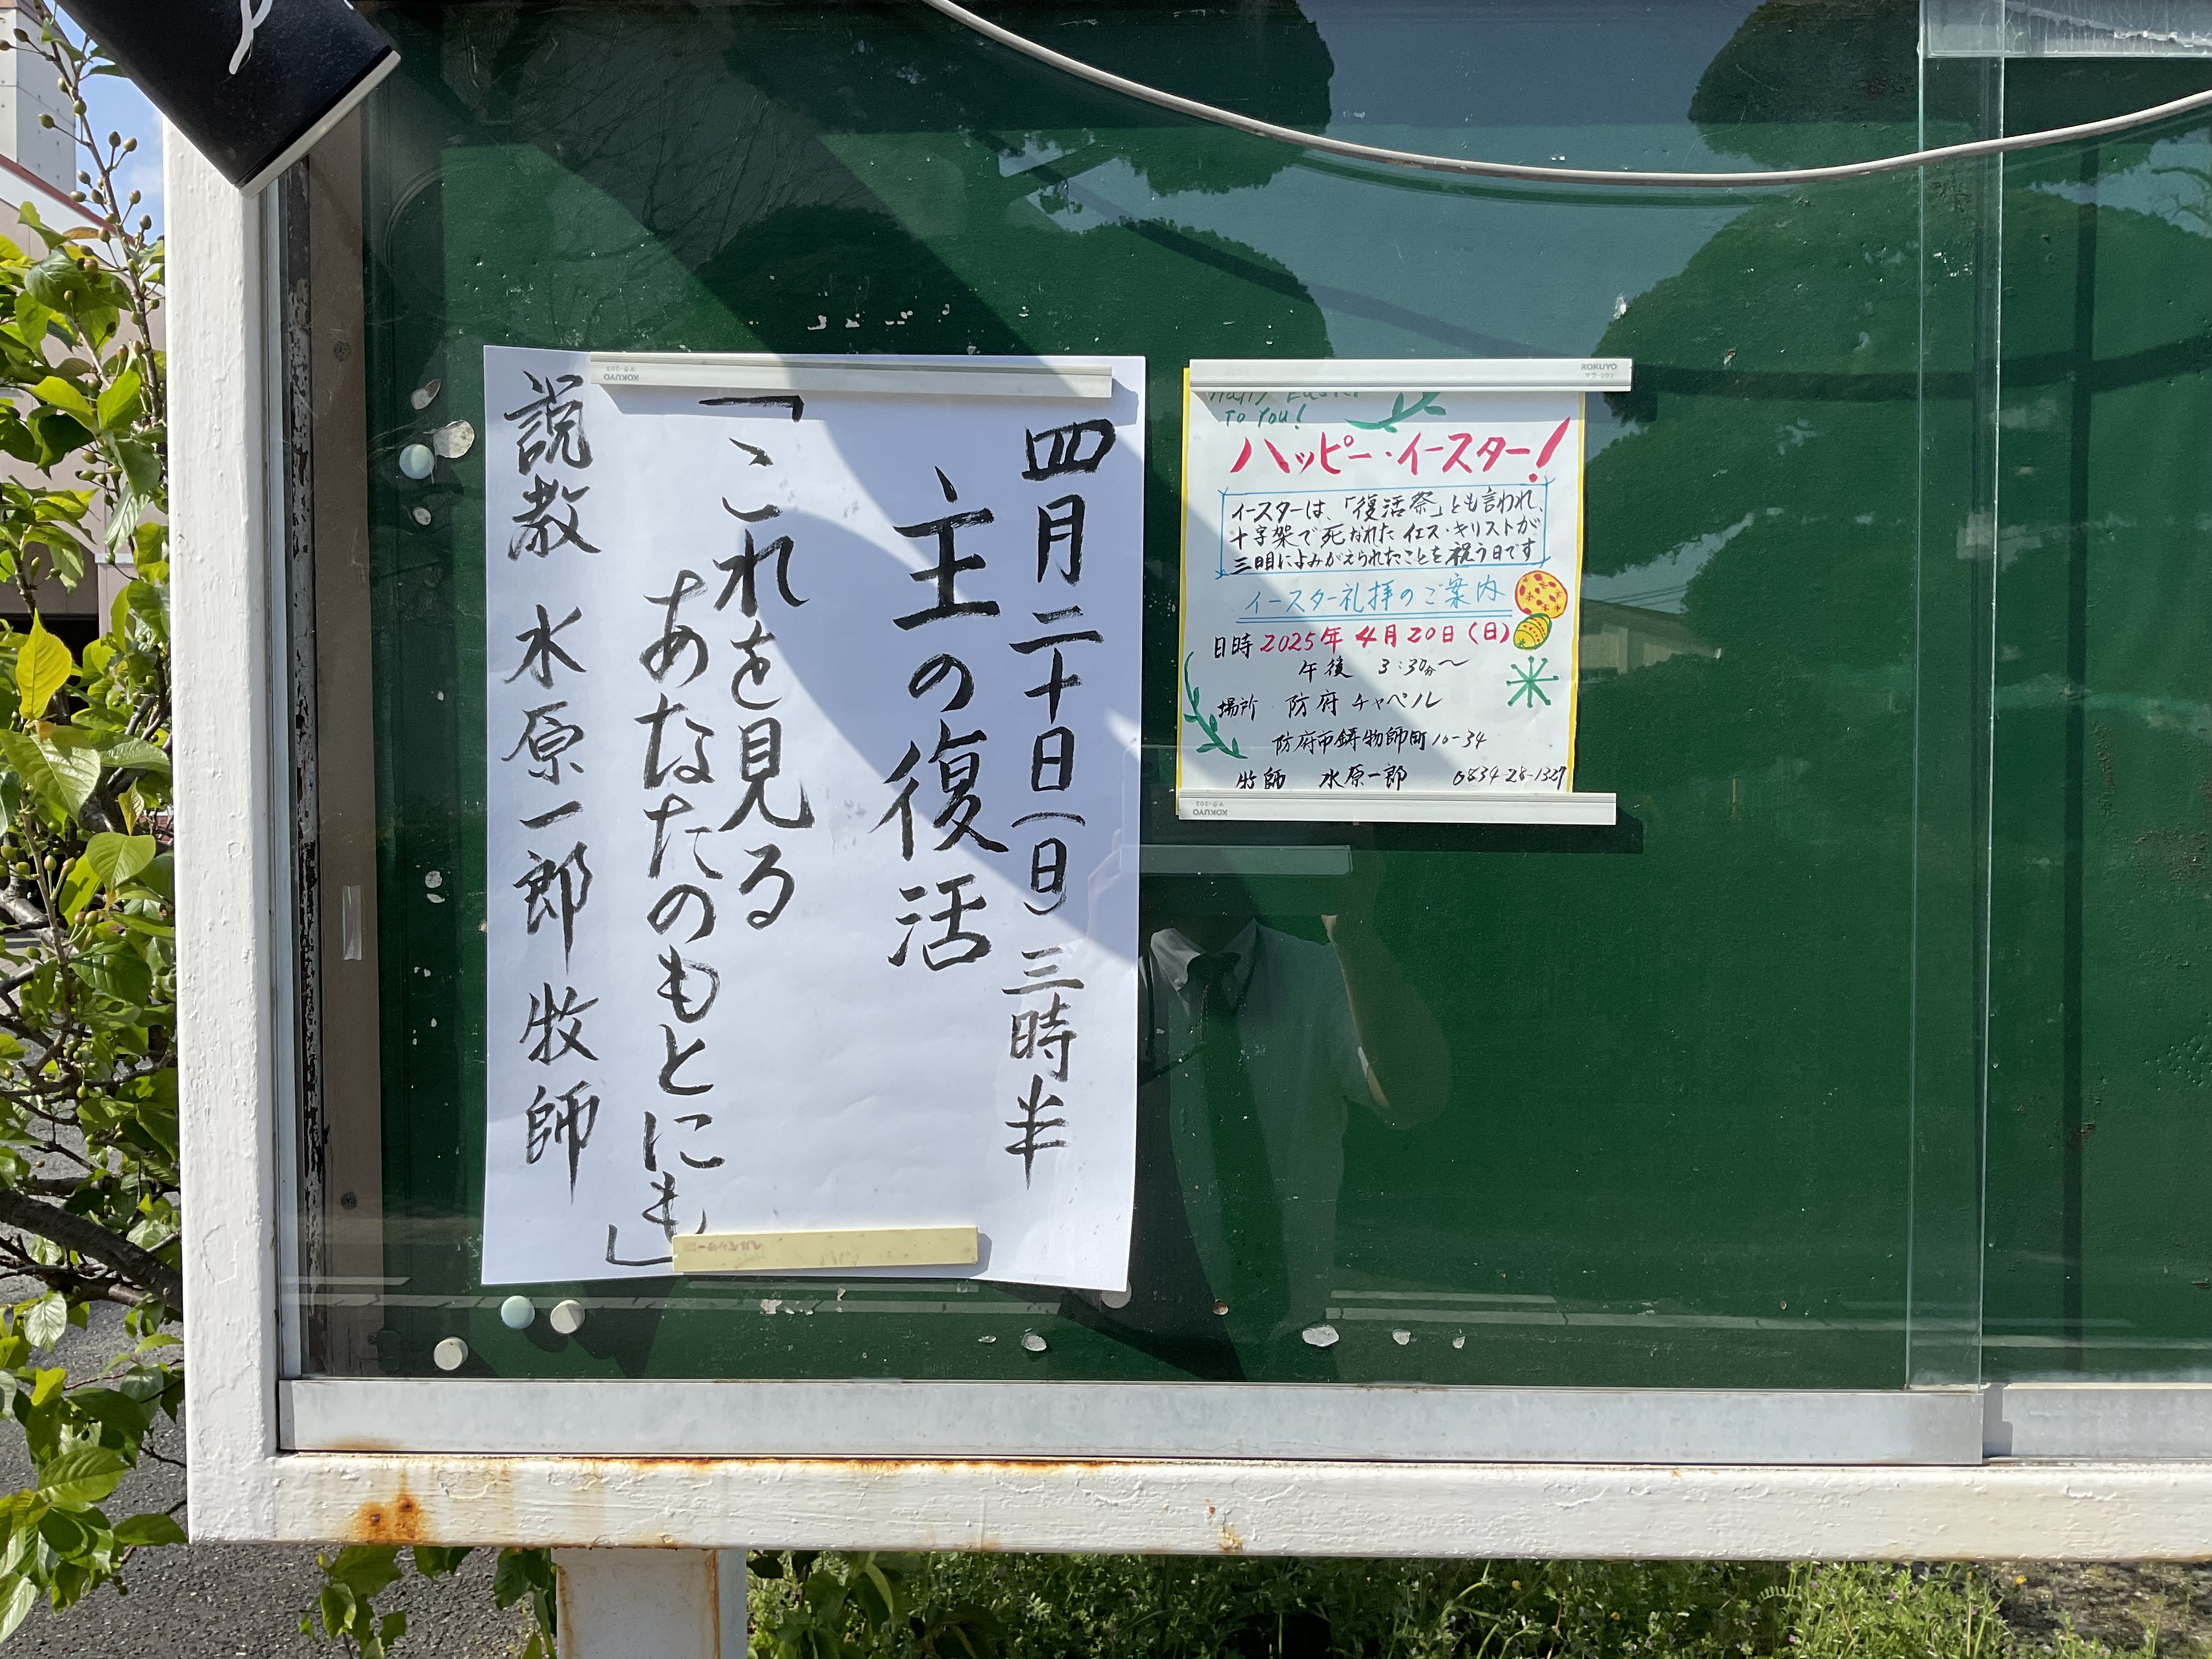 四月二十日(日)三時半
主の復活
「これを見る
あなたのもとにも」
説教 水原一郎 牧師
Happy Easter
To You!
ハッピー・イースター!
イースターは、「復活祭」とも言われ、
十字架で死なれたイエス・キリストが
三日目によみがえられたことを祝う日です
イースター礼拝のご案内
日時 2025年4月20日(日)
午後 3:30分〜
場所 防府チャペル
防府市鋳物師町10-34
牧師 水原一郎 0834-28-1327
KOKUYO
KOKUYO
KOKUYO